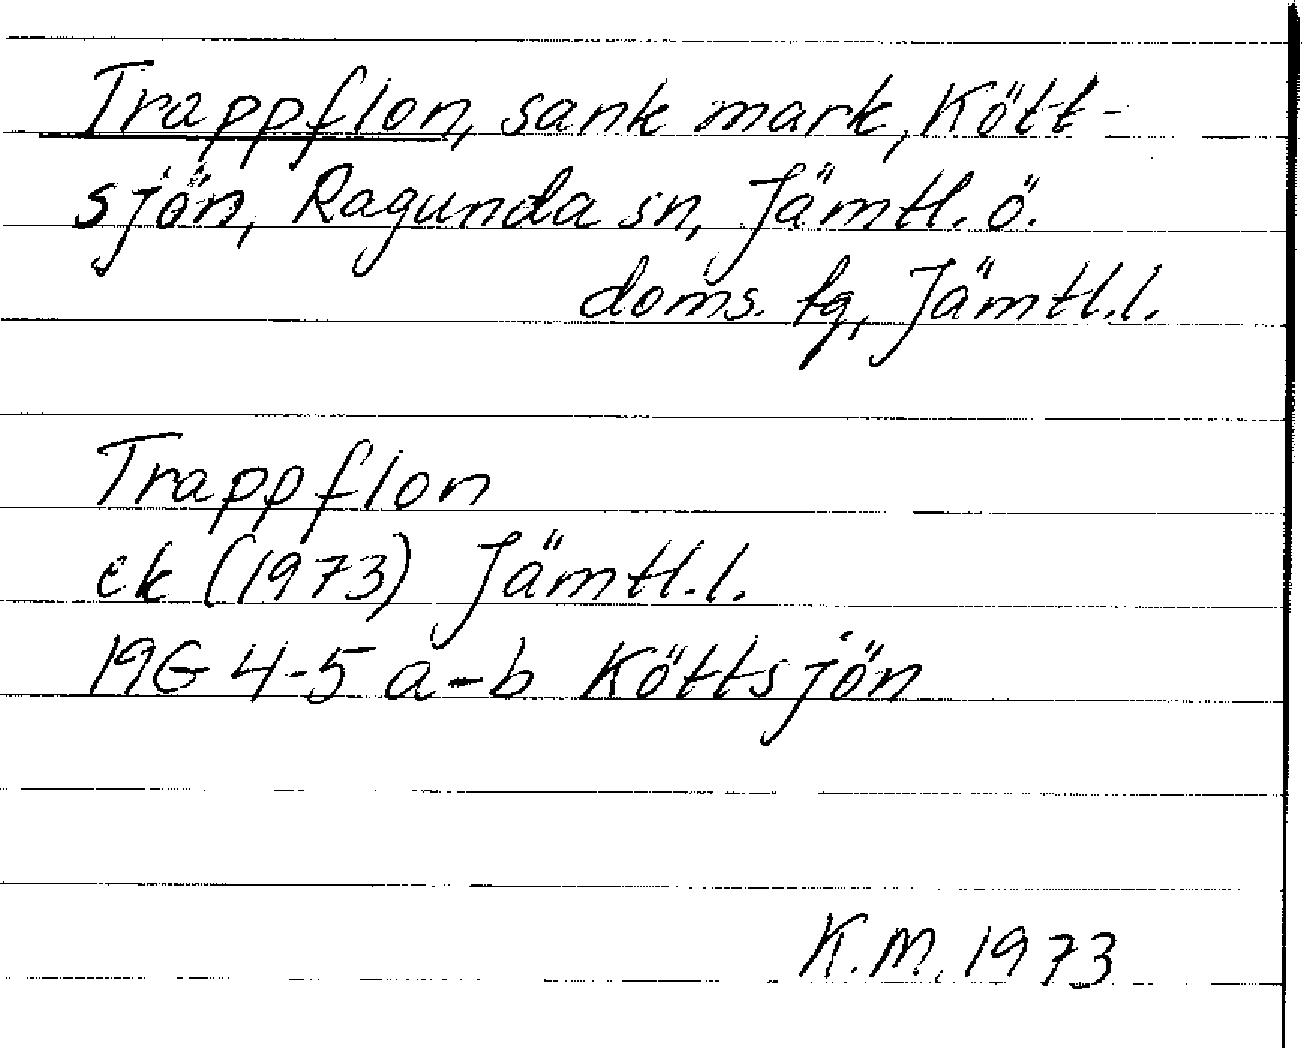 Trappflon, sank mark, Kött-
sjön, Ragunda sn, Jämtl. ö.
doms. fg, Jämtl.l.
Trappflon
ek (1973) Jämtl.l.
19G 4-5 a-b Köttsjön
K.M. 1973